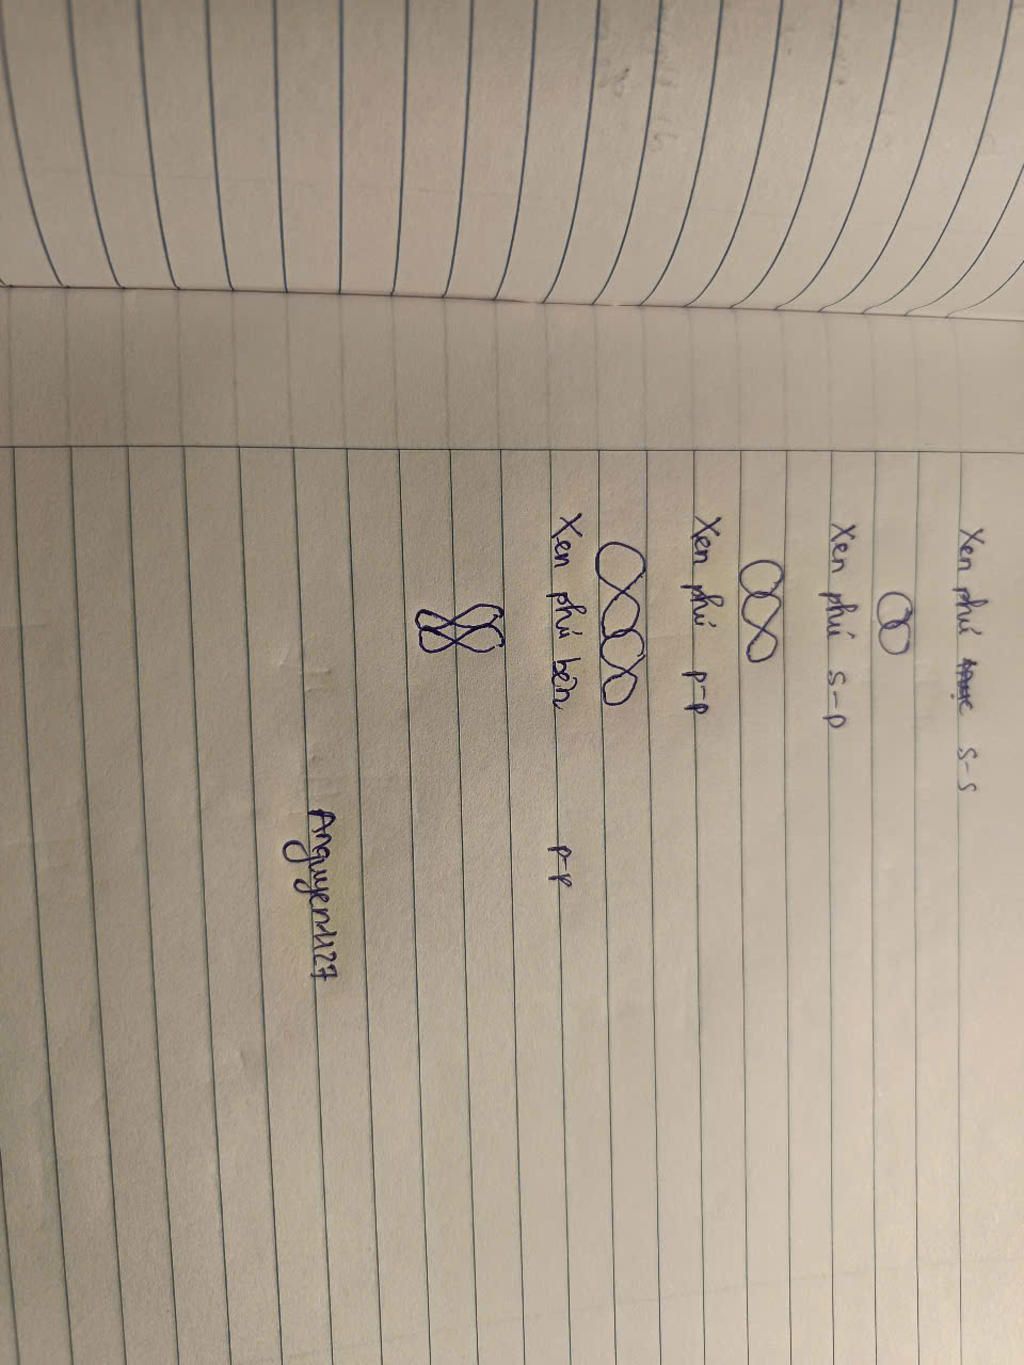 Xen phủ trục s-s
Xen phủ s-p
Xen phủ p-p
Xen phủ bên p-p
Anguyen1127